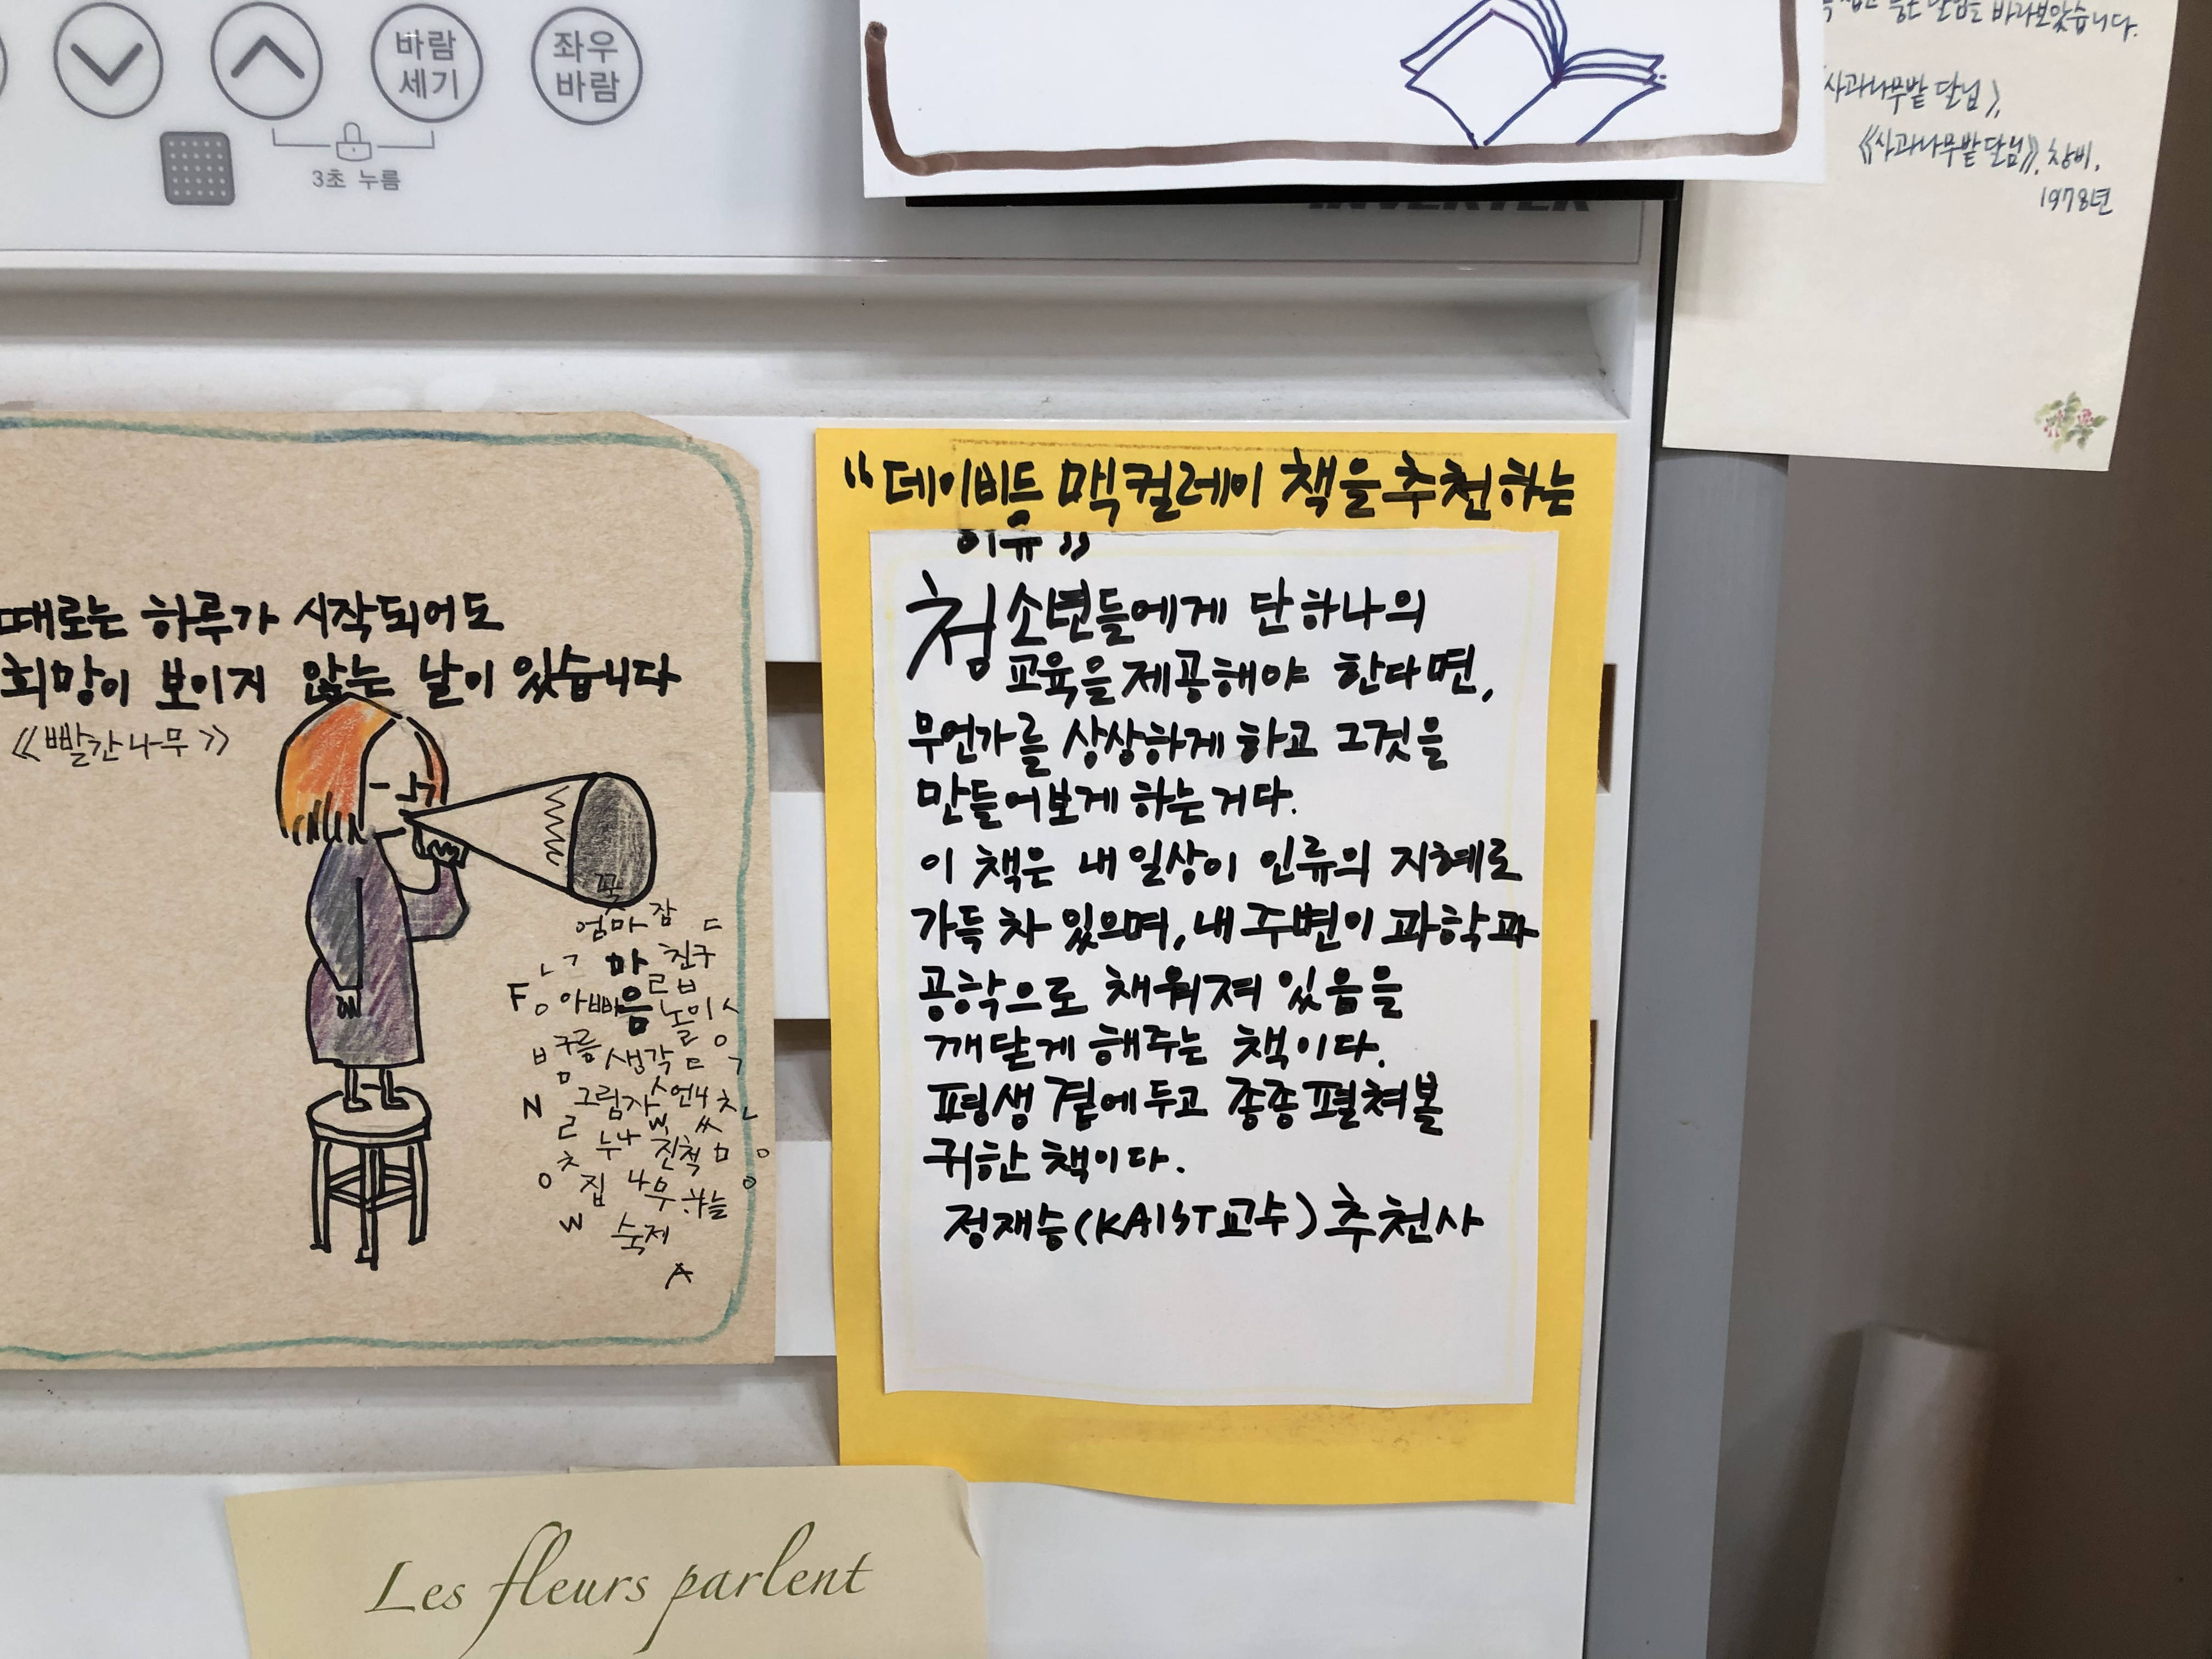 바람
세기
좌우
바람
3초 누름
INVERTER
바라보았습니다.
사과나무밭 달님》,
《《사과나무밭 달님》》, 창비,
1978년
때로는 하루가 시작되어도
희망이 보이지 않는 날이 있습니다
《빨간나무》
꼭
엄마 잠 ㄷ
ㄴ ㄱ 마 친구
ㄹ ㅂ
F ㅇ 아빠 음 놀이 ㅅ
ㅂ 구름 생각 ㄷ ㄱ
ㅁ
N 그림자 언니 ㅊ ㄴ
ㄹ W ㅆ
누나 친척 ㅁ ㅇ
ㅊ
ㅇ 집 나무 하늘 ㅇ
W 숙제
A
“데이비드 맥컬레이 책을 추천하는
이유”
청소년들에게 단 하나의
교육을 제공해야 한다면,
무언가를 상상하게 하고 그것을
만들어보게 하는 거다.
이 책은 내 일상이 인류의 지혜로
가득 차 있으며, 내 주변이 과학과
공학으로 채워져 있음을
깨닫게 해주는 책이다.
평생 곁에 두고 종종 펼쳐볼
귀한 책이다.
정재승(KAIST교수) 추천사
Les fleurs parlent